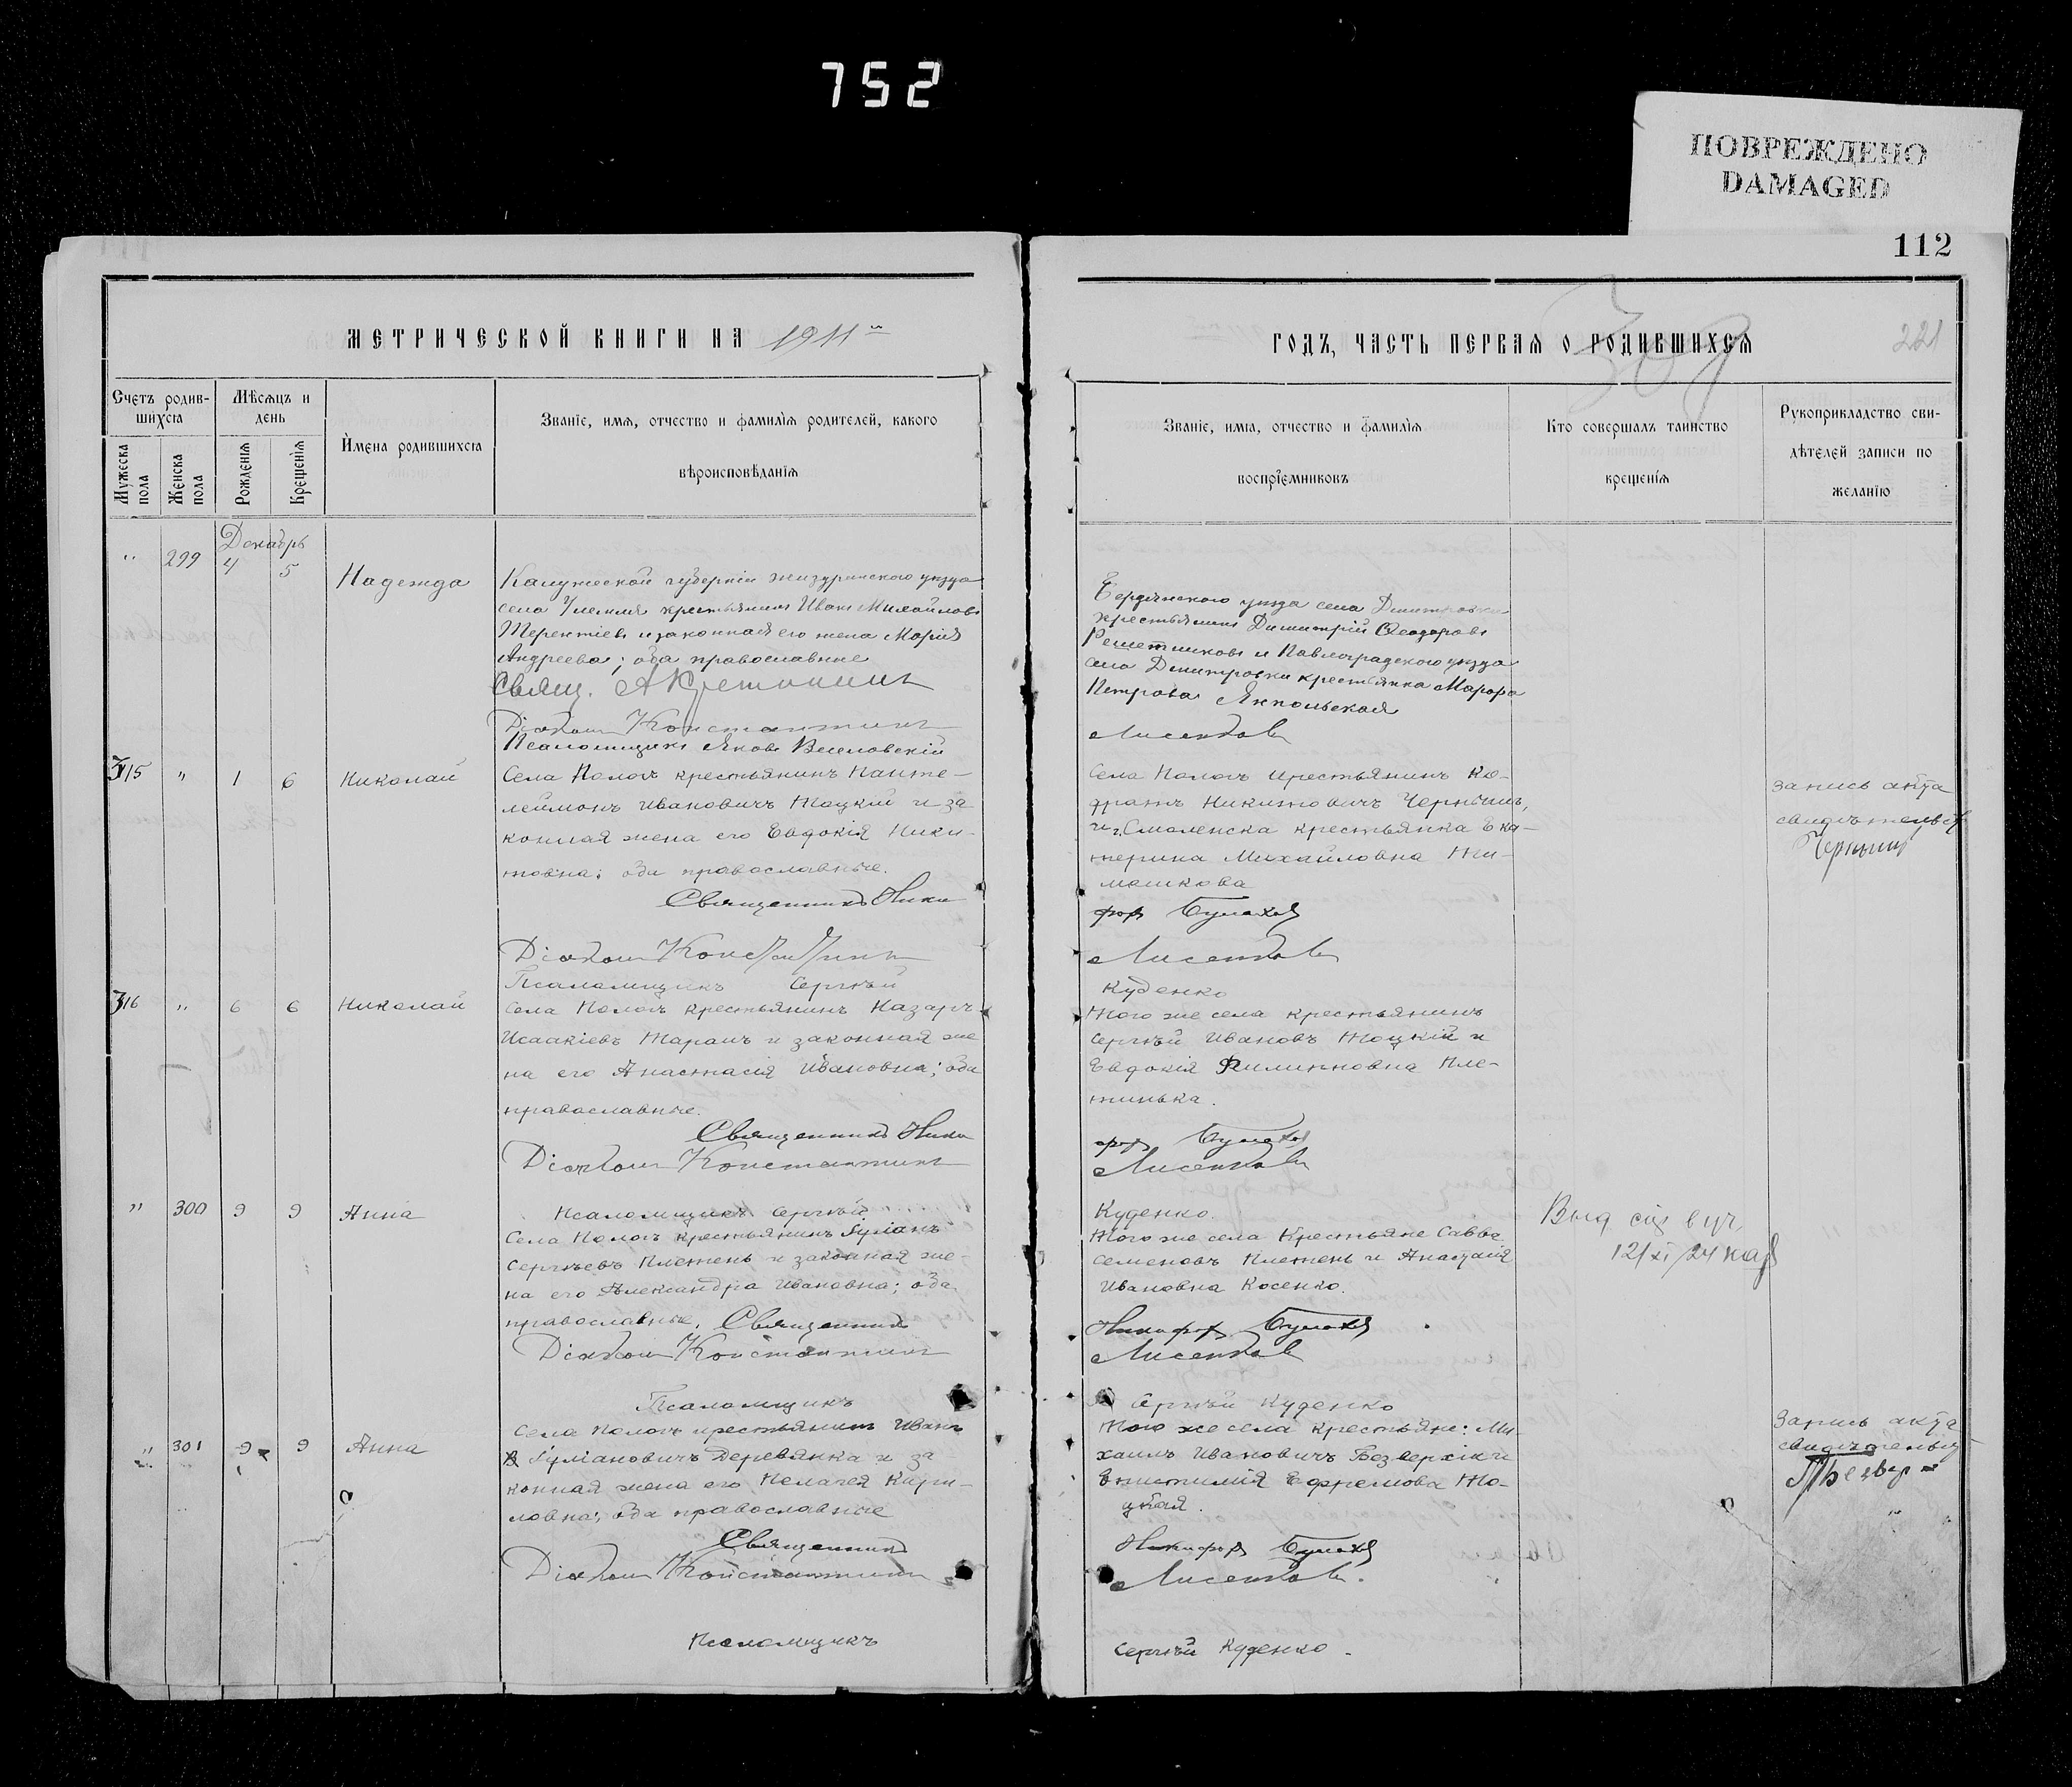 752
ПОВРЕЖДЕНО
DAMAGED
112
МЕТРИЧЕСКОЙ КНИГИ НА 1911й
ГОДЪ, ЧАСТЬ ПЕРВАЯ О РОДИВШИХСЯ
221
Счетъ родив-
шихся
Мѣсяцъ и
день
Имена родившихся
Званіе, имя, отчество и фамилія родителей, какого
вѣроисповѣданія
Мужеска
пола
Женска
пола
Рожденія
Крещенія
Званіе, имя, отчество и фамилія
воспріемниковъ
Кто совершалъ таинство
крещенія
Рукоприкладство сви-
дѣтелей записи по
желанію
Декабрь
" 299 4 5
Надежда
Калужской губерніи Жиздринскаго уѣзда
села крестьянинъ Иванъ Михайловъ
Терентіевъ и законная его жена Марія
Андреева; оба православные
Свящ. А
Діаконъ Константинъ
Псаломщикъ Яковъ Веселовскій
Бердянскаго уѣзда села Дмитровки
крестьянинъ Димитрій Ѳеодоровъ
Решетниковъ и Павлоградскаго уѣзда
села Дмитровки крестьянка Марфа
Петрова Янпольская
Лисенковъ
315 " 1 6 Николай
Села Пологъ крестьянинъ Панте-
леймонъ Ивановичъ Тоцкій и за
конная жена его Евдокія Ники-
товна; оба православные.
Священникъ Ники
Діаконъ Константинъ
Псаломщикъ Сергѣй
Села Пологъ крестьянинъ Ко-
дратъ Никитовичъ Чернышъ,
и г. Смоленска крестьянка Ека-
терина Михайловна Ти-
мошкова
форъ
Лисенковъ
Куденко
запись акта
Чернышъ
316 " 6 6 Николай
Села Пологъ крестьянинъ Назаръ
Исаакіевъ Таранъ и законная же
на его Анастасія Ивановна; оба
православные.
Священникъ Ники
Діаконъ Константинъ
Псаломщикъ Сергѣй
Того же села крестьянинъ
Сергѣй Ивановъ Тоцкій и
Евдокія Филипповна Пле-
тинька.
форъ
Лисенковъ
Куденко.
" 300 9 9 Анна
Села Пологъ крестьянинъ Гуріанъ
Сергѣевъ Плетень и законная же-
на его Александра Ивановна; оба
православные. Священникъ
Діаконъ Константинъ
Псаломщикъ
Того же села Крестьяне Савва
Семеновъ Плетень и Анастасія
Ивановна Косенко.
Никифоръ
Лисенковъ
Сергѣй Куденко
" 301 9 9 Анна
Села Пологъ крестьянинъ Иванъ
Гуріановичъ Деревянка и за
конная жена его Пелагея Кири-
ловна; оба православные
Священникъ
Діаконъ Константинъ
Псаломщикъ
Того же села крестьяне: Ми-
хаилъ Ивановичъ Безверхій и
Епистимія Ефремова То-
цкая.
Никифоръ
Лисенковъ.
Сергѣй Куденко.
Запись акта